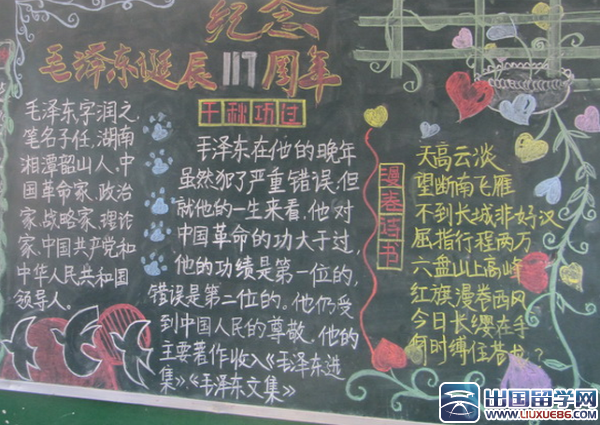 纪念
毛泽东诞辰117周年
毛泽东,字润之,
笔名子任,湖南
湘潭韶山人,中
国革命家、政治
家、战略家、理论
家、中国共产党和
中华人民共和国
领导人。
千秋功过
毛泽东在他的晚年
虽然犯了严重错误,但
就他的一生来看,他对
中国革命的功大于过,
他的功绩是第一位的,
错误是第二位的。他仍受
到中国人民的尊敬,他的
主要著作收入《毛泽东选
集》、《毛泽东文集》
漫卷诗书
天高云淡
望断南飞雁
不到长城非好汉
屈指行程两万
六盘山上高峰
红旗漫卷西风
今日长缨在手
何时缚住苍龙?
出国留学网
WWW.LIUXUE86.COM